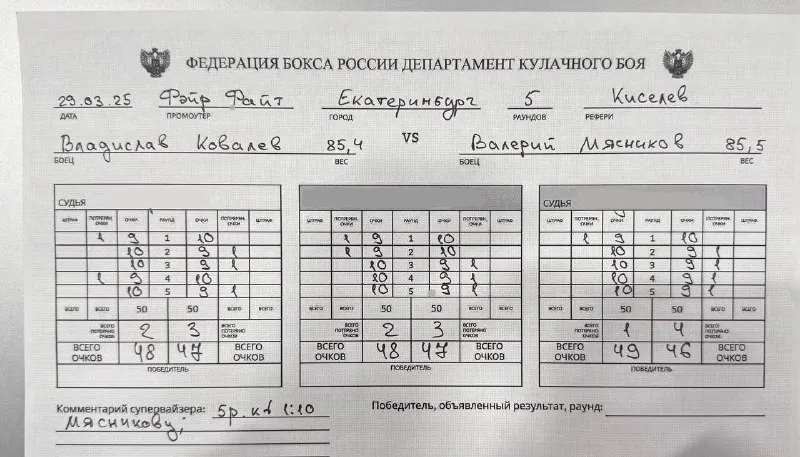 ФЕДЕРАЦИЯ БОКСА РОССИИ ДЕПАРТАМЕНТ КУЛАЧНОГО БОЯ
29.03.25 Фэйр Файт Екатеринбург 5 Киселев
ДАТА ПРОМОУТЕР ГОРОД РАУНДОВ РЕФЕРИ
Владислав Ковалев 85,4 VS Валерий Мясников 85,5
БОЕЦ ВЕС БОЕЦ ВЕС
СУДЬЯ СУДЬЯ
ШТРАФ ПОТЕРЯН. ОЧКИ ОЧКИ РАУНД ОЧКИ ПОТЕРЯН. ОЧКИ ШТРАФ ШТРАФ ПОТЕРЯН. ОЧКИ ОЧКИ РАУНД ОЧКИ ПОТЕРЯН. ОЧКИ ШТРАФ ШТРАФ ПОТЕРЯН. ОЧКИ ОЧКИ РАУНД ОЧКИ ПОТЕРЯН. ОЧКИ ШТРАФ
1 9 1 10 1 9 1 10 1 9 1 10
10 2 9 1 1 9 2 10 10 2 9 1
10 3 9 1 10 3 9 1 10 3 9 1
1 9 4 10 10 4 9 1 10 4 9 1
10 5 9 1 10 5 9 1 10 5 9 1
ВСЕГО ВСЕГО 50 50 ВСЕГО ВСЕГО ВСЕГО ВСЕГО 50 50 ВСЕГО ВСЕГО ВСЕГО ВСЕГО 50 50 ВСЕГО ВСЕГО
ВСЕГО ПОТЕРЯНО ОЧКОВ 2 3 ВСЕГО ПОТЕРЯНО ОЧКОВ ВСЕГО ПОТЕРЯНО ОЧКОВ 2 3 ВСЕГО ПОТЕРЯНО ОЧКОВ ВСЕГО ПОТЕРЯНО ОЧКОВ 1 4 ВСЕГО ПОТЕРЯНО ОЧКОВ
ВСЕГО ОЧКОВ 48 47 ВСЕГО ОЧКОВ ВСЕГО ОЧКОВ 48 47 ВСЕГО ОЧКОВ ВСЕГО ОЧКОВ 49 46 ВСЕГО ОЧКОВ
ПОБЕДИТЕЛЬ ПОБЕДИТЕЛЬ ПОБЕДИТЕЛЬ
Комментарий супервайзера: 5р. кд 1:10 Победитель, объявленный результат, раунд:
Мясникову;